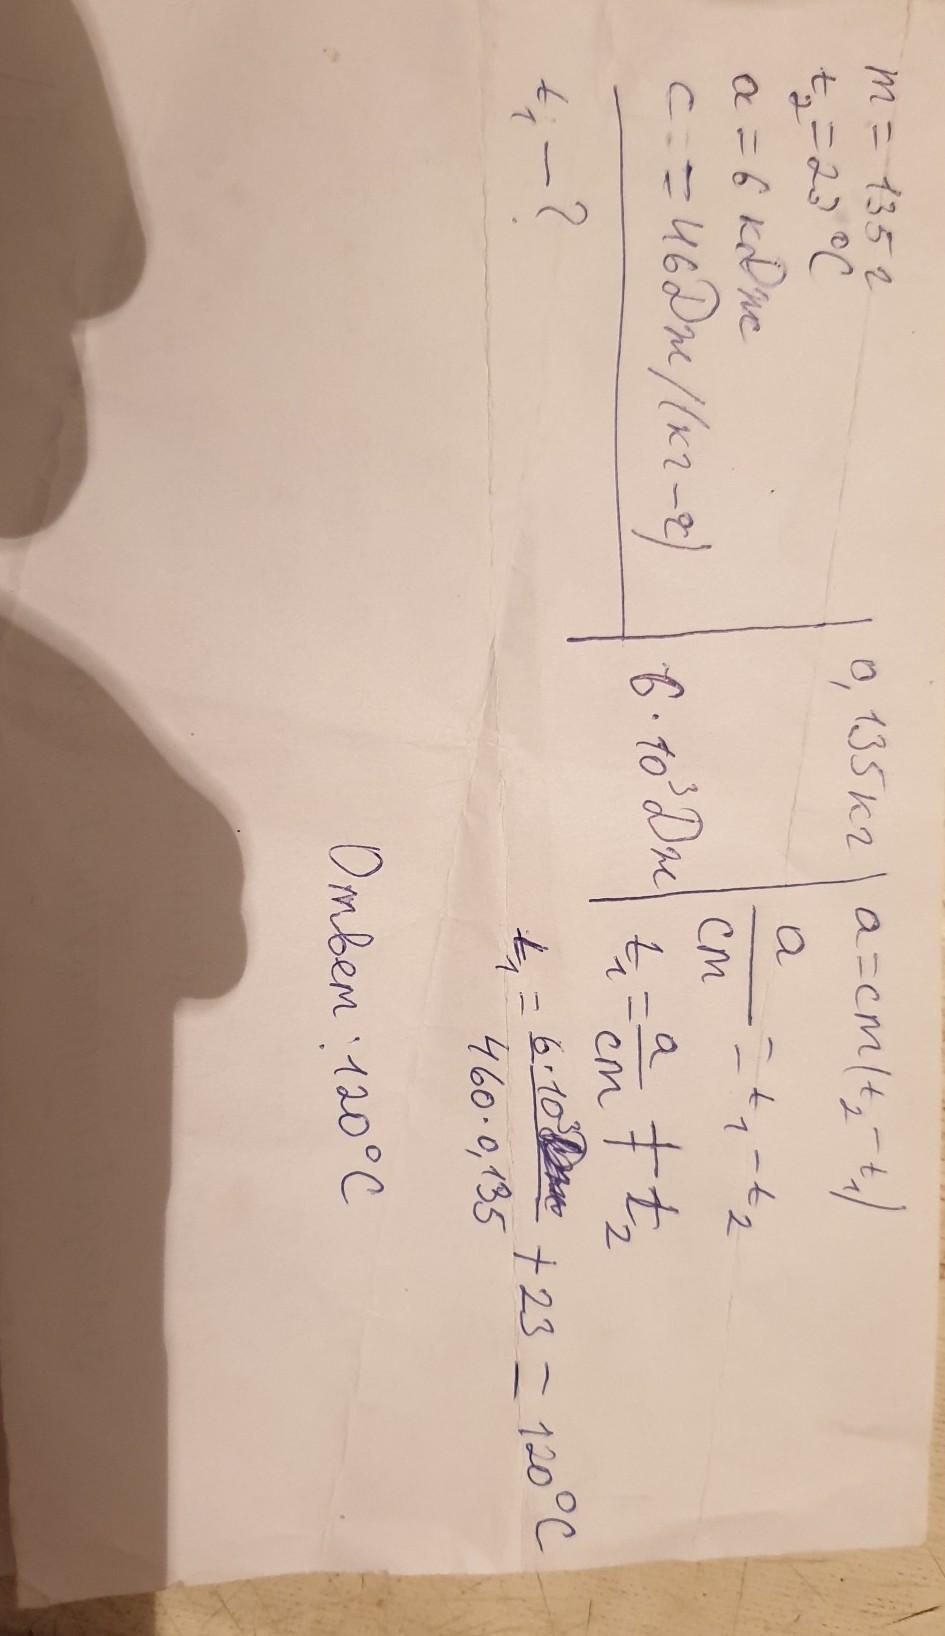 m = 135 г
t₂ = 23 °C
a = 6 кДж
c = = 46Дж/(кг-г)
t₁ — ?
0,135кг
6·10³Дж
a = cm(t₂ - t₁)
a/cm = t₁ - t₂
t₁ = a/cm + t₂
t₁ = 6·10³/460·0,135 + 23 = 120°C
Ответ: 120°C